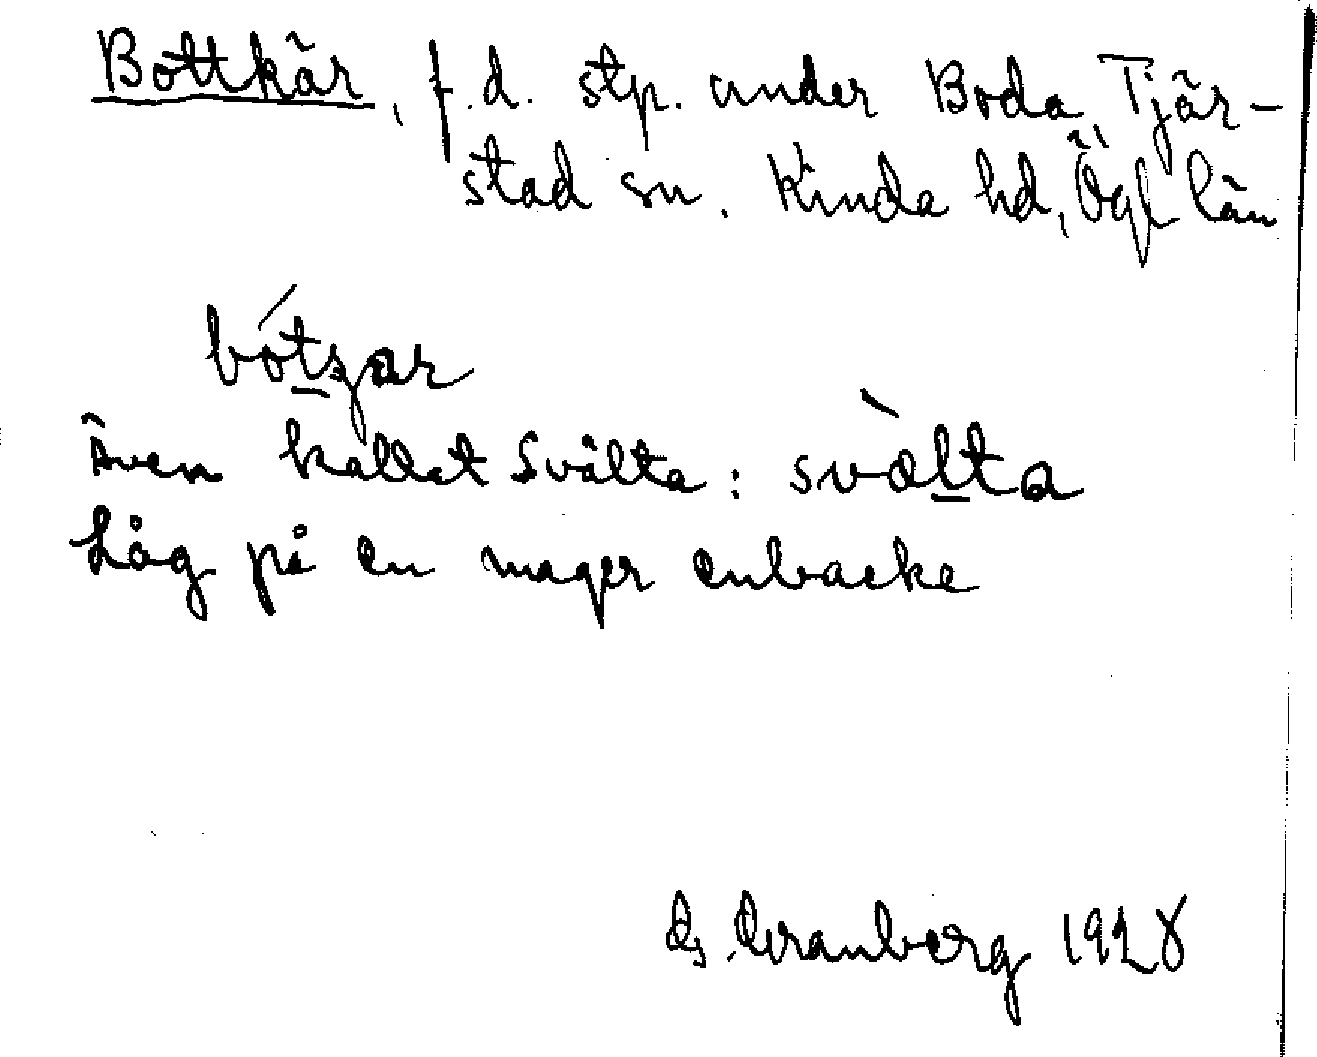 Bottkär, f.d. stp. under Boda, Tjär-
stad sn. Kinda hd, Ögl län
bótzar
Även kallat Svälta: svàlta
Låg på en mager enbacke
G. Granberg 1928